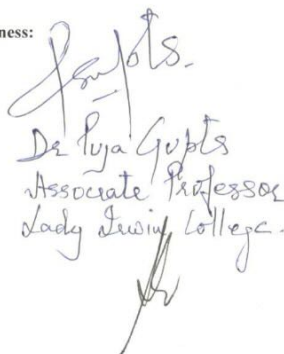 ness:
Dr Puja Gupta
Associate Professor
Lady Irwin College.